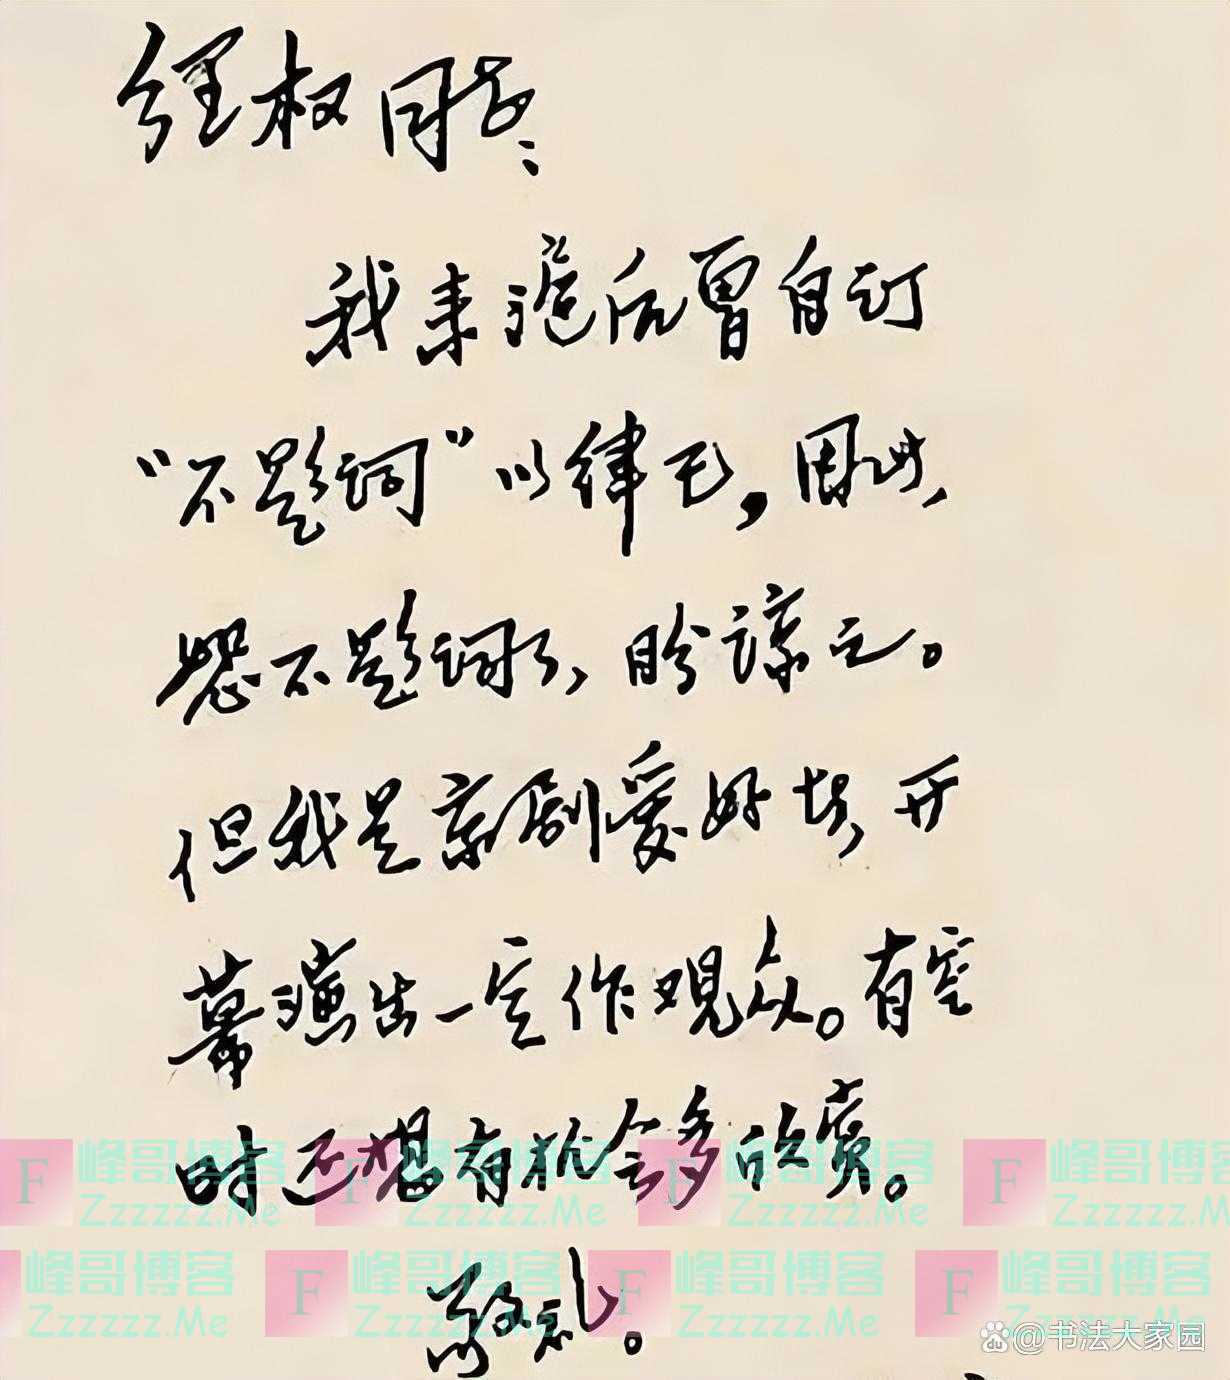 经权同志：
我来沪后曾自订
“不题词”以律己，因此，
恕不题词了，盼谅之。
但我是京剧爱好者，开
幕演出一定作观众。有空
时还想有机会多欣赏。
敬礼。
F 峰哥博客 Zzzzzz.Me
F 峰哥博客 Zzzzzz.Me
F 峰哥博客 Zzzzzz.Me
F 峰哥博客 Zzzzzz.Me
峰哥博客 Zzzzzz.Me
F 峰哥博客 Zzzzzz.Me
F 峰哥博客 Zzzzzz.Me
F 峰哥博客 Zzzzzz.Me
@书法大家园